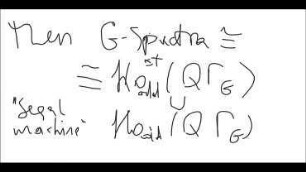 Then G-Spectra ≅
≅ Ho^{st}_{add}(QΓ_G)
∪
"Segal machine" Ho_{add}(QΓ_G)